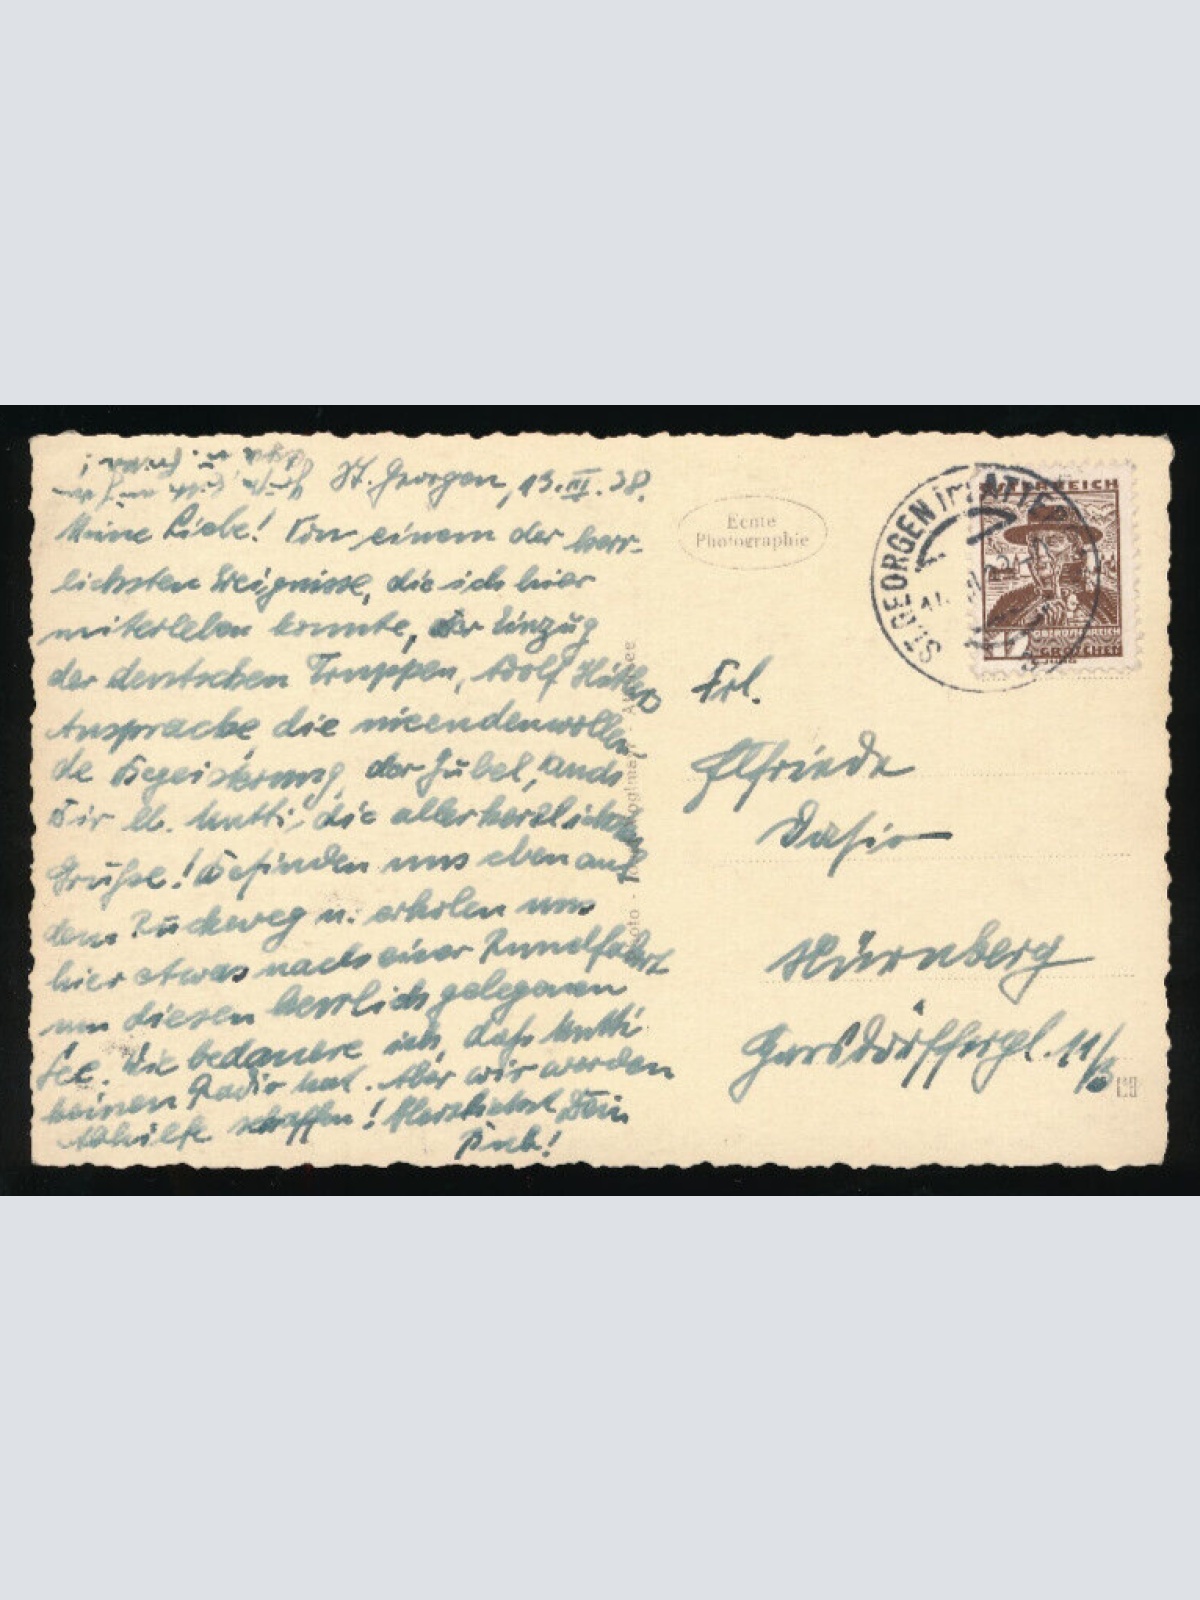 St. Georgen, 13.III.38.
Meine Liebe! Von einem der herr-
lichsten Ereignisse, die ich hier
miterleben konnte, der Einzug
der deutschen Truppen, Adolf Hitlers
Ansprache, die nieendenwollen
de Begeisterung, der Jubel, sende
Dir u. Mutti, die allerherzlichsten
Grüße! Befinden uns eben auf
dem Rückweg u. erholen uns
hier etwas nach einer Rundfahrt
um diesen herrlich gelegenen
See. Wie bedauere ich, daß Mutti
keinen Radio hat. Aber wir werden
Abhilfe schaffen! Herzlichst Dein
Echte
Photographie
ST. GEORGEN IM ATTER
ÖSTERREICH
OBERÖSTERREICH
GROSCHEN
Frl.
Elfriede
Dasio
Nürnberg
11/3